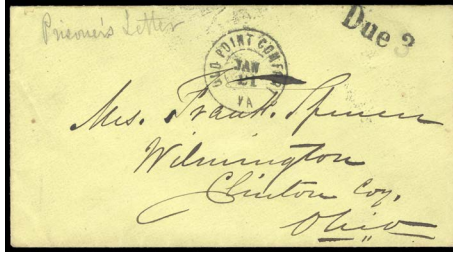 Prisoner's Letter
Due 3
OLD POINT COMFORT
JAN
21
VA
Mrs. Frank. Spencer
Wilmington
Clinton Coy.
Ohio